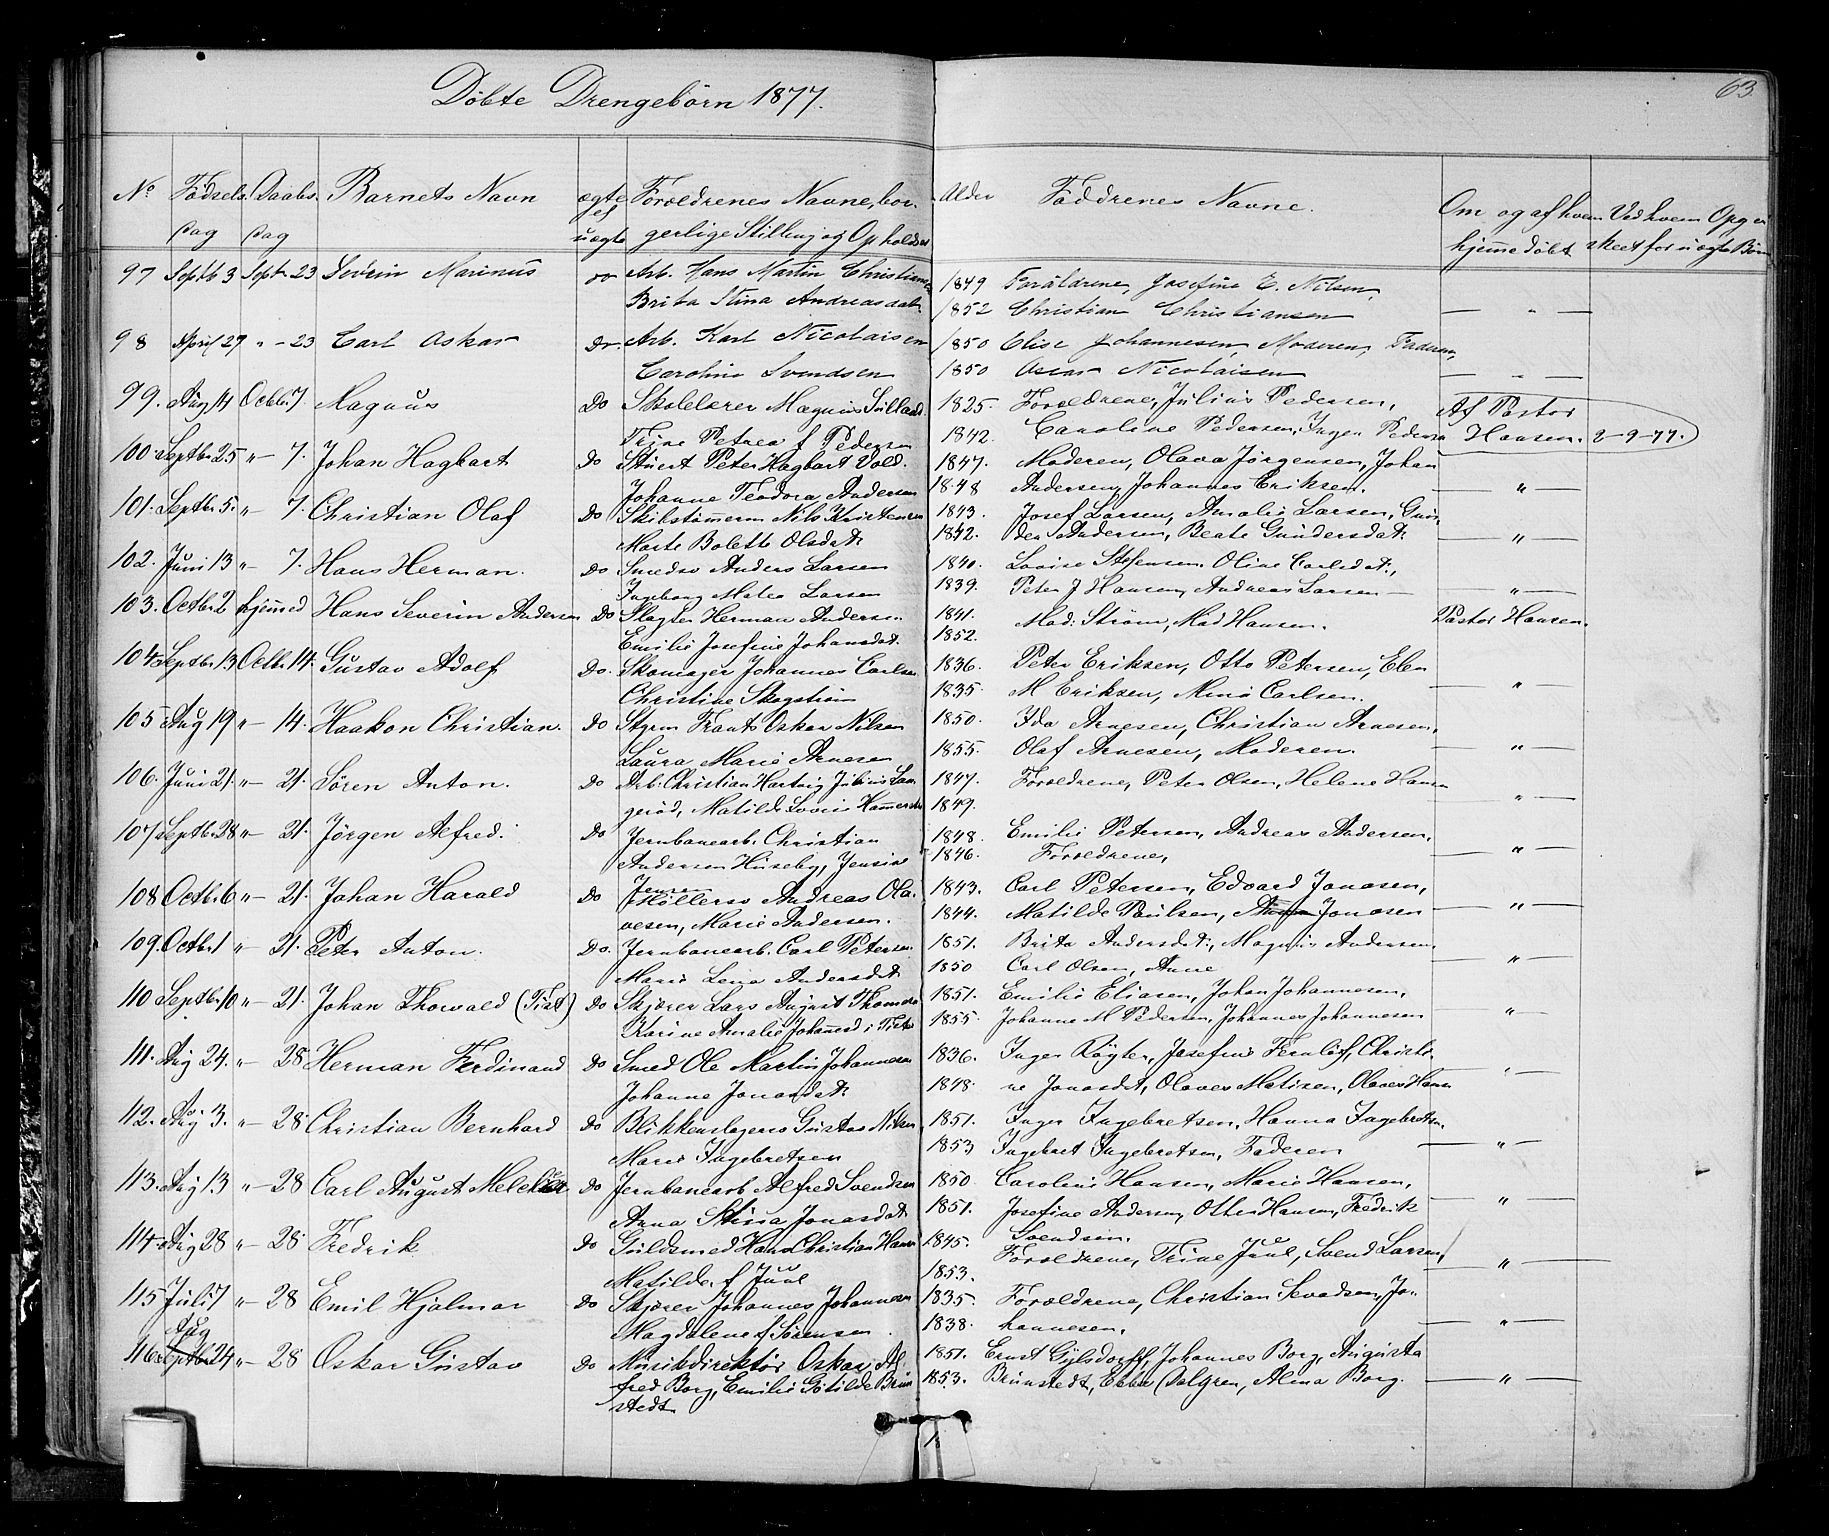 Döbte Drengebörn 1877.
63
No Födsels Daabs Barnets Navn ægte Foreldrenes Navne, bor- Alder Faddrenes Navne. Om og af hvem Ved hvem Opg er
dag dag el uægte gerlige Stilling og Opholds hjemme döbt skeet for uægte Börn
97 Septb 3 Sept 23 Severin Marinus Arb. Hans Martin Christiansen 1849 Foräldrene, Josefine E. Nilsen,
Brita Stina Andreasdat. 1852 Christian Christiansen — " —
98 April 27 " - 23 Carl Oskar Do Arb. Karl Nicolaisen 1850 Elise Johannesen, Moderen, Faderen,
Caroline Svendsen 1850 Oscar Nicolaisen — " —
99. Aug 14 Octb. 7. Magnus Do Skolelærer Magnus 1825. Foreldrene, Julius Pedersen, Af Pastor
Trine Petrea f Pedersen 1842. Caroline Pedersen, Inger Pedersen Hansen. 2-9-77.
100. Septbr 25 " 7. Johan Hagbart Do Stuert Peter Hagbart Vold. 1847. Moderen, Olava Jörgensen, Johan
Johanne Teodora Andersen 1848 Andersen, Johannes Eriksen. — " —
101. Septbr 5. " 7. Christian Olaf Do Skibstömerm Nils Kristensen 1843. Josef Larsen, Amalie Larsen, Gun-
Marte Bolette Olsdat. 1842. Andersen, Beate Gundersdat. — " —
102. Juni 13 " 7. Hans Herman. Do Smedsv Anders Larsen 1840. Lovise Stefensen. Oline Carlsdat.,
Ingeborg Matea Larsen 1839. Peter J Hansen, Andreas Larsen — " —
103. Octbr 2 hjemmed Hans Severin Andersen Do Slagter Herman Andersen 1841. Mad: Ström, Mad Hansen. Pastor Hansen.
Emilie Josefine Johansdat. 1852.
104. Septbr 13 Octbr 14. Gustav Adolf Do. Skomager Johannes Carlsen 1836. Peter Eriksen, Otto Petersen, Elen
Christine Skogström 1835. M Eriksen, Mina Carlsen. — " —
105 Aug 19 " 14. Haakon Christian. Do Styrm Frants Oskar Nilsen 1850. Ida Arnesen, Christian Arnesen,
Laura Marie Arnesen 1855. Olaf Arnesen, Moderen. — " —
106. Juni 21. " 21. Sören Anton. Do Arb: Christian Hartvig Julius Lan- 1847. Foreldrene, Peter Olsen, Helene Hansen
geröd, Matilde Lovise 1849. — " —
107 Septbr 28 " 21. Jörgen Alfred. Do Jernbanearb. Christian 1848. Emilie Petersen, Andreas Andersen,
Andersen Huseby, Jensine 1846. Foreldrene, — " —
Jensen
108 Octb. 6 " 21. Johan Harald Do Möllersv Andreas Ola- 1843. Carl Petersen, Edvard Jonasen,
vesen, Marie Andersen. 1844. Matilde Paulsen, Jonasen — " —
109. Octb. 1 " 21. Peter Anton. Do. Jernbanearb. Carl Petersen 1851. Brita Andersdat., Magnus Andersen.
Marie Lena Andersdat 1850 Carl Olsen, Anne — " —
110 Septbr 10 " 21. Johan Thorvald (Tist) Do Skjærer Lars August Thomesen 1851. Emilie Eliasen, Johan Johannesen,
Karine Amalie Johansd i Tist 1855. Johanne M Pedersen, Johannes Johannesen — " —
111. Aug 24. " 28 Herman Ferdinand Do Smed Ole Martin Johannesen 1836. Inger Röyter, Josefine Fernlöf, Christi-
Johanne Jonasdat. 1848. ne Jonasdt, Olaves Matisen, Olaves Hansen — " —
112. Aug. 3. " 28 Christian Bernhard Do Blikkenslagersv Gustav Nilsen 1851. Inger Ingebretsen, Hanna Ingebretsen,
Marie Ingebretsen 1853 Ingebret Ingebretsen, Faderen — " —
113. Aug 13 " 28 Carl August Melchior Do Jernbanearb Alfred Svendsen 1850. Caroline Hansen, Marie Hansen,
Anna Stina Jonasdat. 1851. Josefine Andersen, Otto Hansen, Fredrik — " —
Svendsen.
114. Aug 28 " 28. Fredrik Do Guldsmed Hans Christian Hansen 1845. Foreldrene, Trine Juul, Svend Larsen,
Matilde f Juul 1853. — " —
115 Juli 7 " 28 Emil Hjalmar Do Skjærer Johannes Johannesen 1835. Foreldrene, Christian Sevadsen, Jo-
Magdalene f Sörensen. 1838. hannesen. — " —
Aug
116. Septbr 24 " 28 Oskar Gustav Do Musikdirektör Oskar Al- 1851. Ernst Gylsdorff, Johannes Borg, Augusta
fred Borg, Emilie Gotilde Brun 1853. Brunstedt, Ebba Dalgren, Alma Borg. — " —
stedt